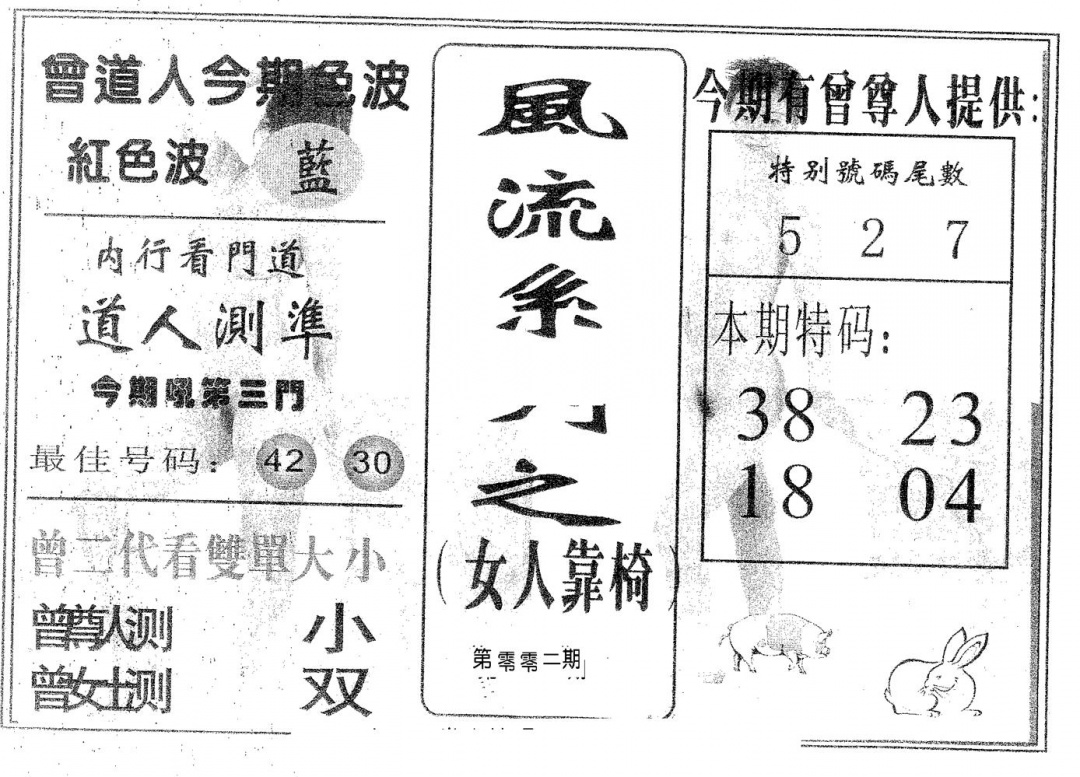 曾道人今期色波
紅色波 藍
内行看門道
道人測準
今期吼第三門
最佳号码: 42 30
曾二代看雙單大小
曾尊人测 小
曾女士测 双
風
流
系
之
(女人靠椅)
第零零二期
今期有曾尊人提供:
特别號碼尾數
5 2 7
本期特码:
38 23
18 04